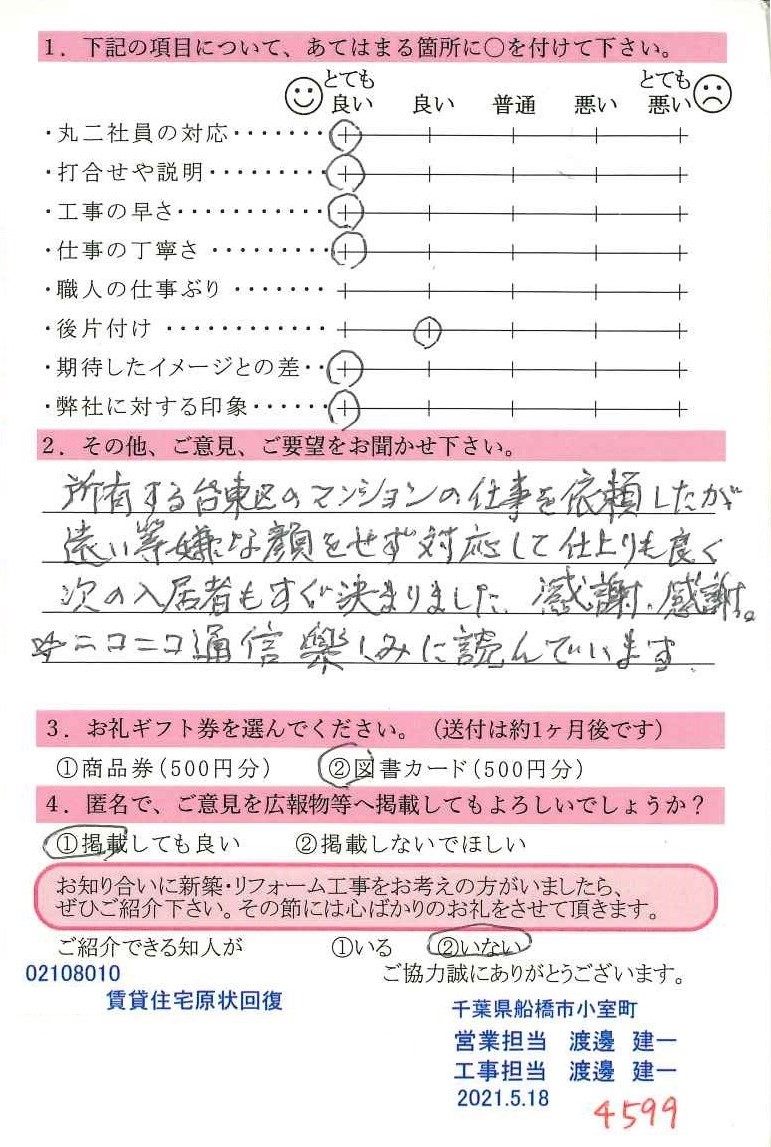 1. 下記の項目について、あてはまる箇所に○を付けて下さい。
とても良い 良い 普通 悪い とても悪い
・丸二社員の対応・・・・・・・
・打合せや説明・・・・・・・・・
・工事の早さ・・・・・・・・・・・
・仕事の丁寧さ・・・・・・・・・
・職人の仕事ぶり・・・・・・・
・後片付け・・・・・・・・・・・・
・期待したイメージとの差・・
・弊社に対する印象・・・・・・
2. その他、ご意見、ご要望をお聞かせ下さい。
所有する台東区のマンションの仕事を依頼したが
遠い等嫌な顔をせず対応して仕上りも良く
次の入居者もすぐ決まりました、感謝、感謝。
☆ニコニコ通信楽しみに読んでいます.
3. お礼ギフト券を選んでください。(送付は約1ヶ月後です)
①商品券(500円分) ②図書カード(500円分)
4. 匿名で、ご意見を広報物等へ掲載してもよろしいでしょうか?
①掲載しても良い ②掲載しないでほしい
お知り合いに新築・リフォーム工事をお考えの方がいましたら、
ぜひご紹介下さい。その節には心ばかりのお礼をさせて頂きます。
ご紹介できる知人が ①いる ②いない
02108010
ご協力誠にありがとうございます。
賃貸住宅原状回復
千葉県船橋市小室町
営業担当 渡邊 建一
工事担当 渡邊 建一
2021.5.18
4599